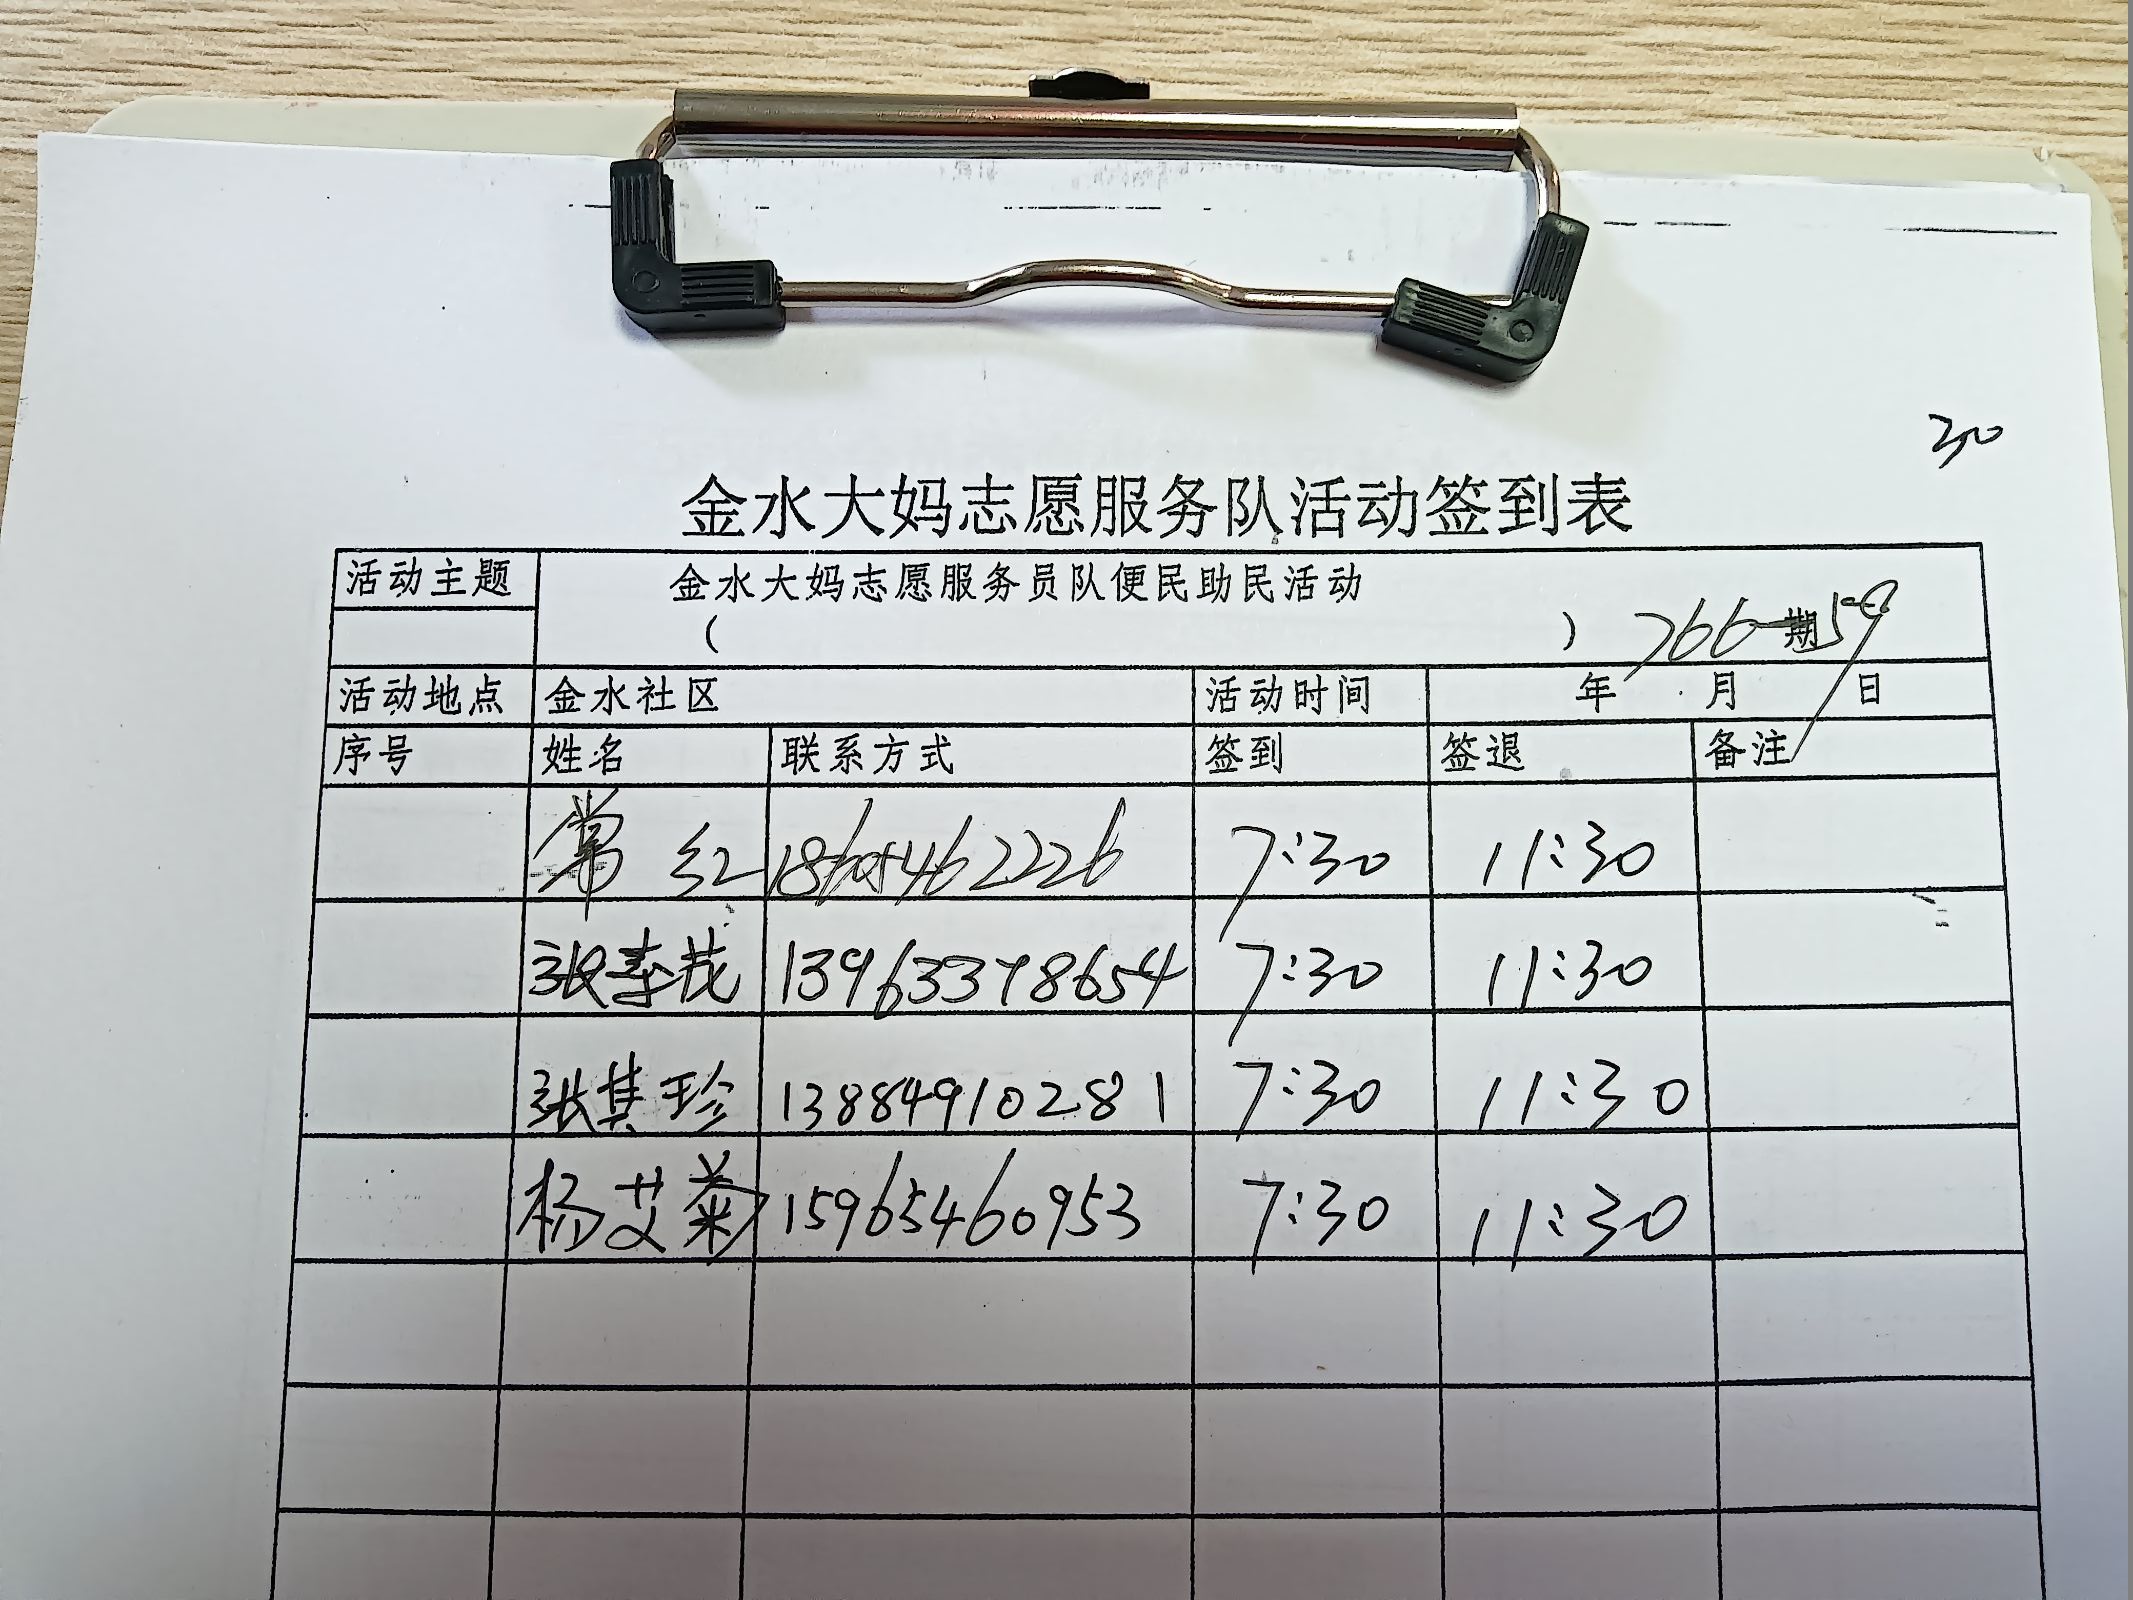 30
金水大妈志愿服务队活动签到表
活动主题 金水大妈志愿服务员队便民助民活动
( ) 766期59
活动地点 金水社区 活动时间 年 月 日
序号 姓名 联系方式 签到 签退 备注
常红 18605462226 7:30 11:30
张秀茂 13963378654 7:30 11:30
张其珍 13884910281 7:30 11:30
杨艾菊 15965460953 7:30 11:30